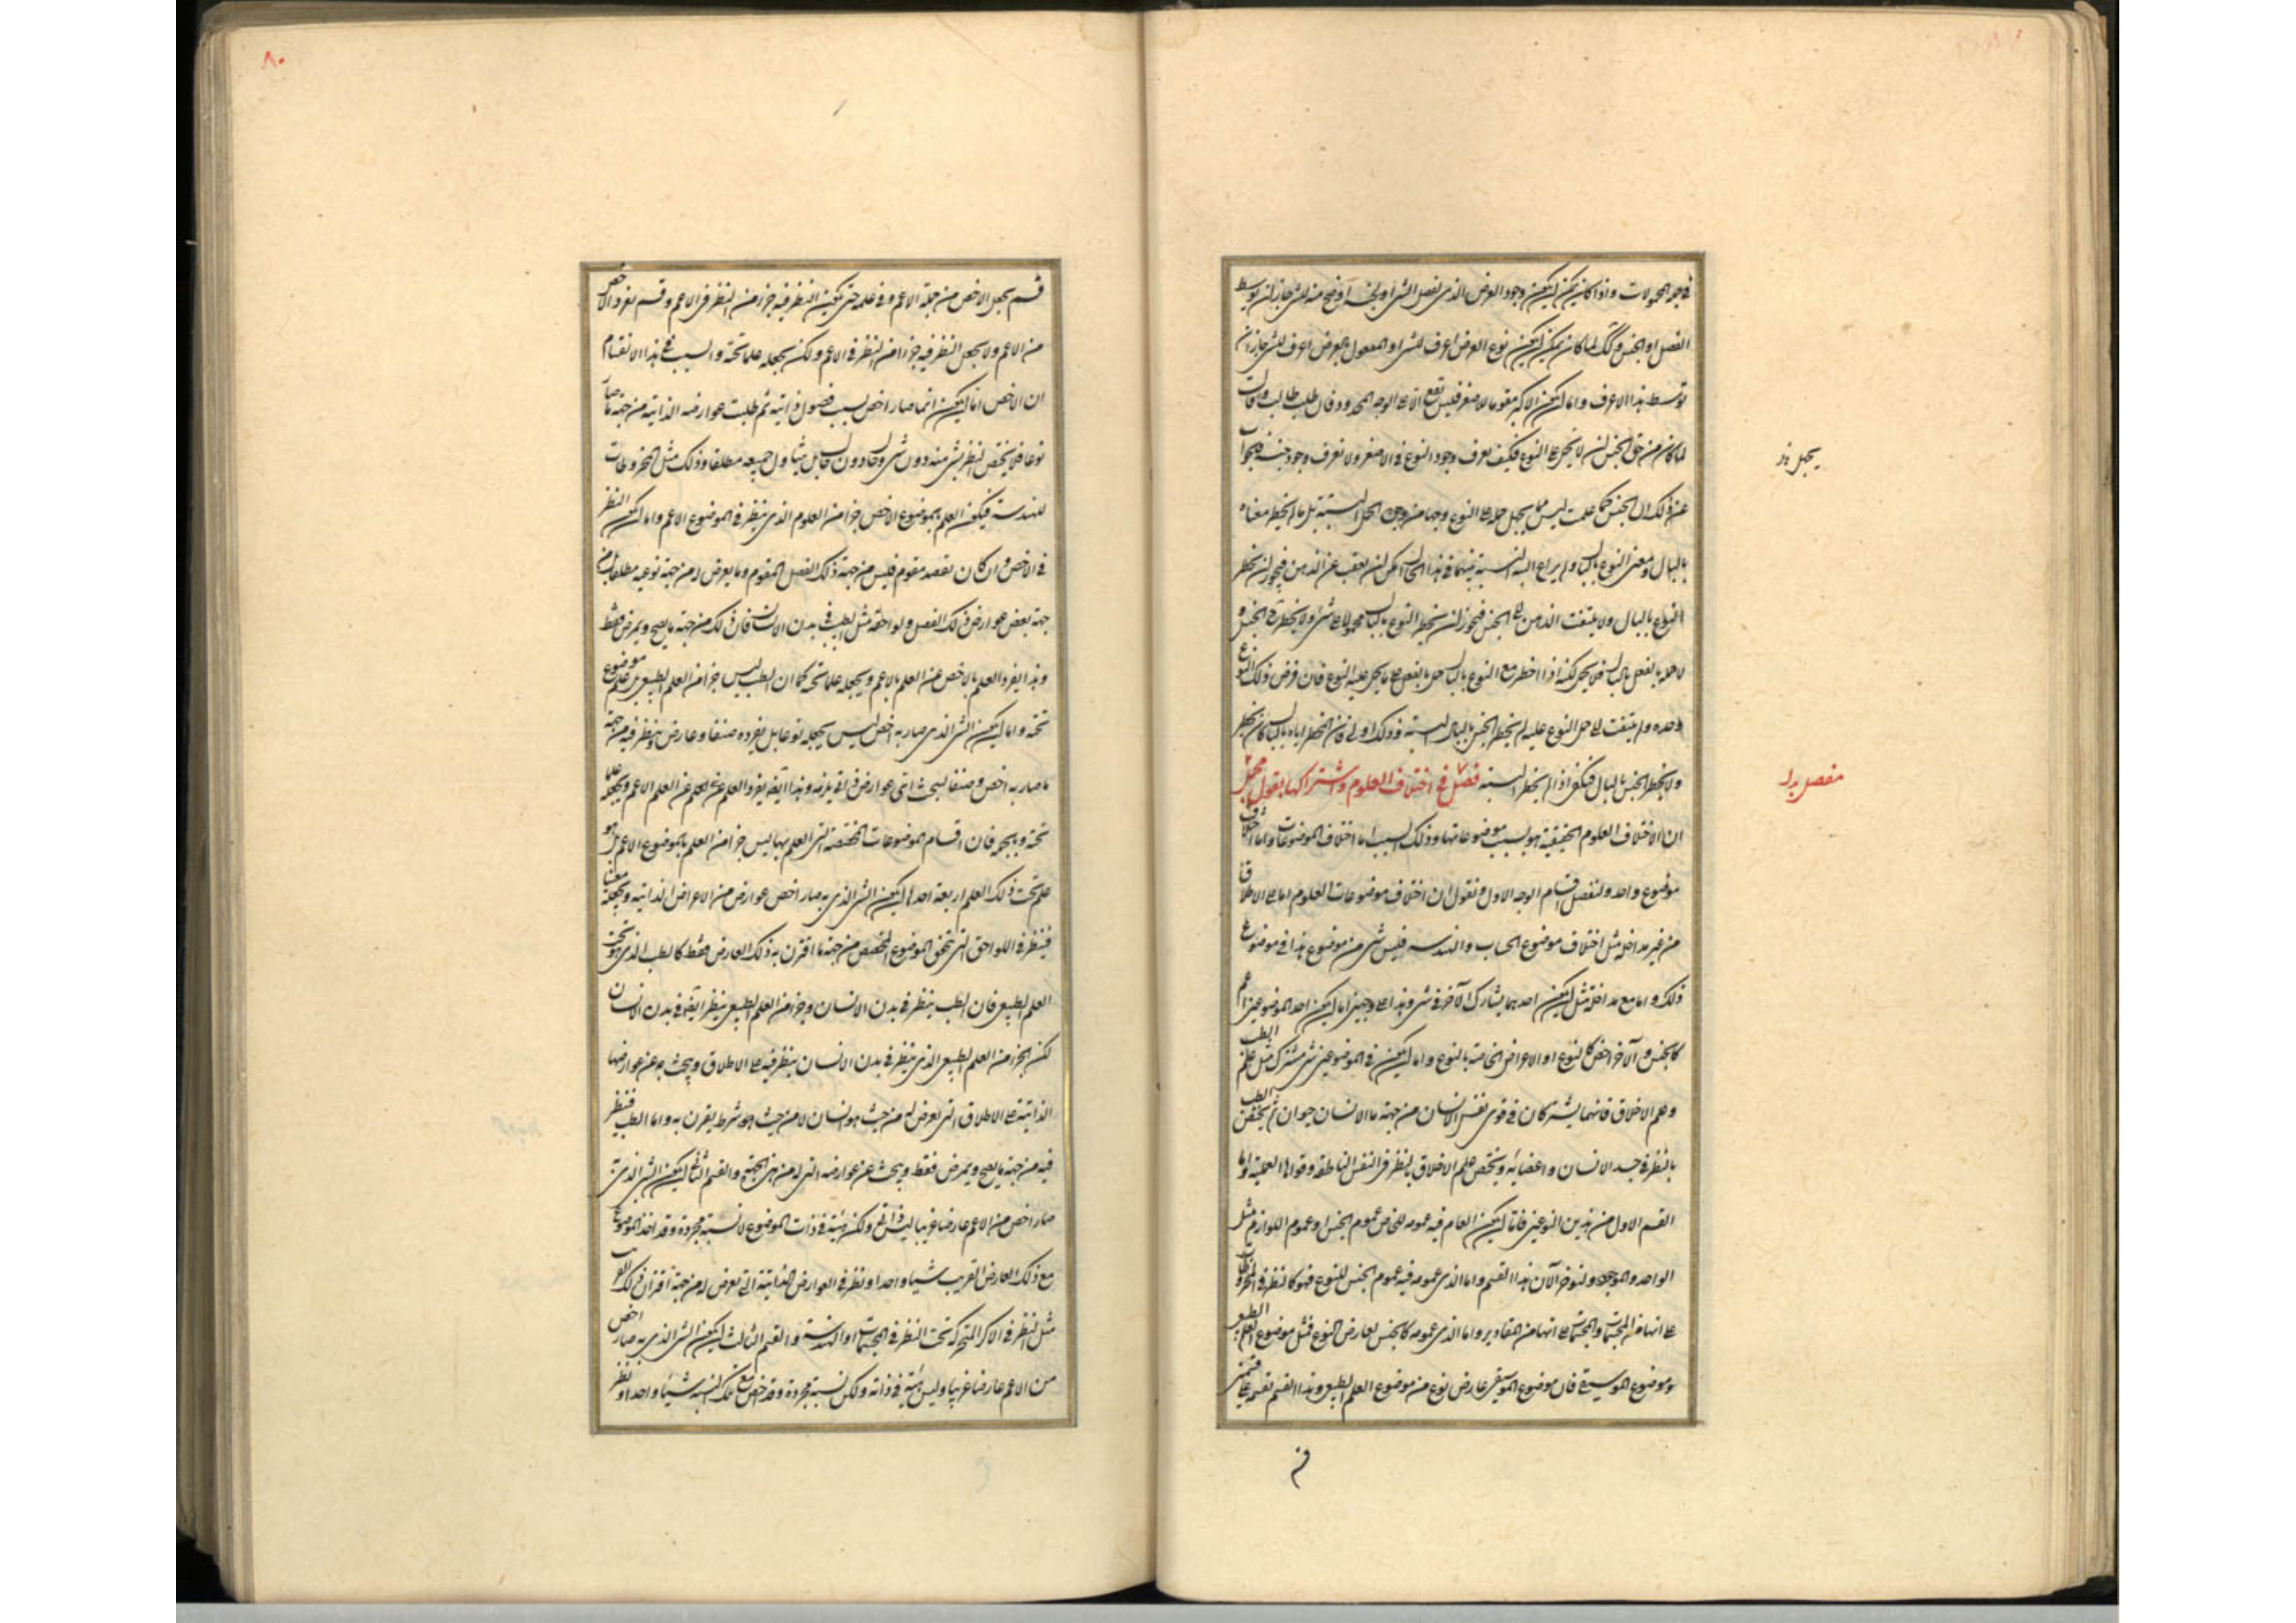 في جملة المحمولات واذا كان يمكن ان يكون وجود العرض الذى لفصل الشئ او لجنسه اوضح منه للشئ جاز ان يوسط
الفصل او الجنس وكذلك لما كان يمكن ان يكون نوع العرض اعرف للشئ او المعمول بالعرض اعرف للشئ جاز ان
توسط هذا الاعرف واما ان يكون الاكبر مقوما للاصغر فليس يقع الا على الوجه المحدود فان طلب طالب وقال
لما كان من حق الجنس ان لا يجهل للنوع فكيف يعرف وجود النوع فى الاصغر ولا يعرف وجود جنسه فالجواب
عن ذلك ان الجنس كما علمت ليس مما يجهل حمله على النوع وجها من وجوه الجهل البتة بل ما لم يخطر معناه
بالبال ومعنى النوع بالبال ولم يراع البتة النسبة بينهما فى هذا الحال امكن ان يغيب عن الذهن فيجوز ان يخطر
النوع بالبال ولا يلتفت الذهن الى الجنس فيجوز ان يخطر النوع بالبال محمولا على شئ ولا يخطر الجنس و
لا حمله بالفعل بالبال فلا يحمل لكنه اذا اخطر مع النوع بالبال حمل بالفعل على ما يحمل عليه النوع فان فرض ذلك النوع
وحده ولم يلتفت الى حمل النوع عليه لم يخطر الجنس بالبال البتة فذلك اولى فان اخطر اياه بالبال كان يخطر
ولا يخطر الجنس بالبال فكيف اذا لم يخطر البتة فصل ٧ فى اختلاف العلوم واشتراكها بقول مجمل
ان الاختلاف العلوم الحقيقية هو بسبب موضوعاتها وذلك السبب اما اختلاف الموضوعات واما اختلاف
موضوع واحد ولنفصل اقسام الوجه الاول ونقول ان اختلاف موضوعات العلوم اما على الاطلاق
من غير مداخلة مثل اختلاف موضوع الحساب والهندسة فليس شئ من موضوع هذا فى موضوع
ذلك واما مع مداخلة مثل ان يكون احدهما يشارك الآخر فى شئ وهذا على وجهين اما ان يكون احد الموضوعين اعم
كالجنس والآخر اخص كالنوع او الاعراض الخاصة بالنوع واما ان يكون فى الموضوعين شئ مشترك مثل علم الطب
وعلم الاخلاق فانهما يشتركان فى قوى نفس الانسان من جهة ما الانسان حيوان ثم يختص الطب
بالنظر فى جسد الانسان واعضائه ويختص علم الاخلاق بالنظر فى النفس الناطقة وقواها العملية واما
القسم الاول من هذين النوعين فاما ان يكون العام فيه عمومه للخاص عموم الجنس او عموم اللوازم مثل
الواحد والموجود ولنؤخر الآن هذا القسم واما الذى عمومه فيه عموم الجنس للنوع فهو كالنظر فى المخروطات
على انها من المجسمات والمجسمات على انها من المقادير واما الذى عمومه كالجنس لعارض النوع فمثل موضوع العلم الطبيعى
وموضوع الموسيقى فان موضوع الموسيقى عارض نوع من موضوع العلم الطبيعى وهذا القسم نقسمه على قسمين
يجهل
مفصل بدل
٨٠
قسم يجعل الاخص من جملة الاعم وفى علمه حتى يكون النظر فيه جزء من النظر فى الاعم وقسم يفرد الاخص
من الاعم ولا يجعل النظر فيه جزءا من النظر فى الاعم ولكن يجعله علما تحته والسبب فى هذا الانقسام
ان الاخص اما ان يكون انما صار اخص بسبب فصول ذاتية ثم طلبت عوارضه الذاتية من جهة ما صار
نوعا فلا يختص النظر بشئ منه دون شئ وحال دون حال بل يتناول جميعه مطلقا وذلك مثل المخروطات
للهندسة فيكون العلم بالموضوع الاخص جزءا من العلوم الذى ينظر فى الموضوع الاعم واما ان يكون النظر
فى الاخص وان كان بفصل مقوم فليس من جهة ذلك الفصل المقوم وما يعرض له من جهة نوعيته مطلقا بل من
جهة بعض عوارض ذلك الفصل ولواحقه مثل الطب فى بدن الانسان فان ذلك من جهة ما يصح ويمرض فقط
وهذا يفرد العلم بالاخص عن العلم بالاعم ويجعله علما تحته كما ان الطب ليس جزءا من العلم الطبيعى بل علم موضوع
تحته واما ان يكون الشئ الذى صار به اخص ليس يجعله نوعا بل يفرده صنفا وعارض وينظر فيه من جهة
ما صار به اخص وصنفا ليبحث اى عوارض ذاتية يلزمه وهذا ايضا يفرد العلم عن العلم الاعم ويجعله علما
تحته وبالجملة فان اقسام الموضوعات المختصة التى العلم بها ليس جزءا من العلم بالموضوع الاعم بل هو
علم تحت ذلك العلم اربعة احدها ان يكون الشئ الذى به صار اخص عوارض من الاعراض الذاتية ويجعله معينا
فينظر فى اللواحق التى تلحق الموضوع المخصص من جهة ما اقترن به ذلك العارض فقط كالطب الذى هو تحت
العلم الطبيعى فان الطب ينظر فى بدن الانسان وجزء من العلم الطبيعى ينظر ايضا فى بدن الانسان
لكن الجزء من العلم الطبيعى الذى ينظر فى بدن الانسان ينظر فيه على الاطلاق ويبحث عن عوارضها
الذاتية على الاطلاق التى تعرض له من حيث هو انسان لا من حيث هو شرط يقرن به واما الطب فينظر
فيه من جهة ما يصح ويمرض فقط ويبحث عن عوارضه التى له من هذه الجهة والقسم الثانى ان يكون الشئ الذى به
صار اخص من الاعم عارضا غريبا ليس ذاتى ولكن هيئة فى ذات الموضوع لا نسبة مجردة وقد اخذ الموضوع
مع ذلك العارض الغريب شيئا واحدا ونظر فى العوارض الذاتية التى تعرض له من جهة اقتران ذلك الغريب
مثل النظر فى الاكر المتحركة تحت النظر فى المجسمات او الهندسة والقسم الثالث ان يكون الشئ الذى به صار اخص
من الاعم عارضا غريبا وليس هيئة فى ذاته ولكن نسبة مجردة وقد اخذ مع تلك النسبة شيئا واحدا ونظر